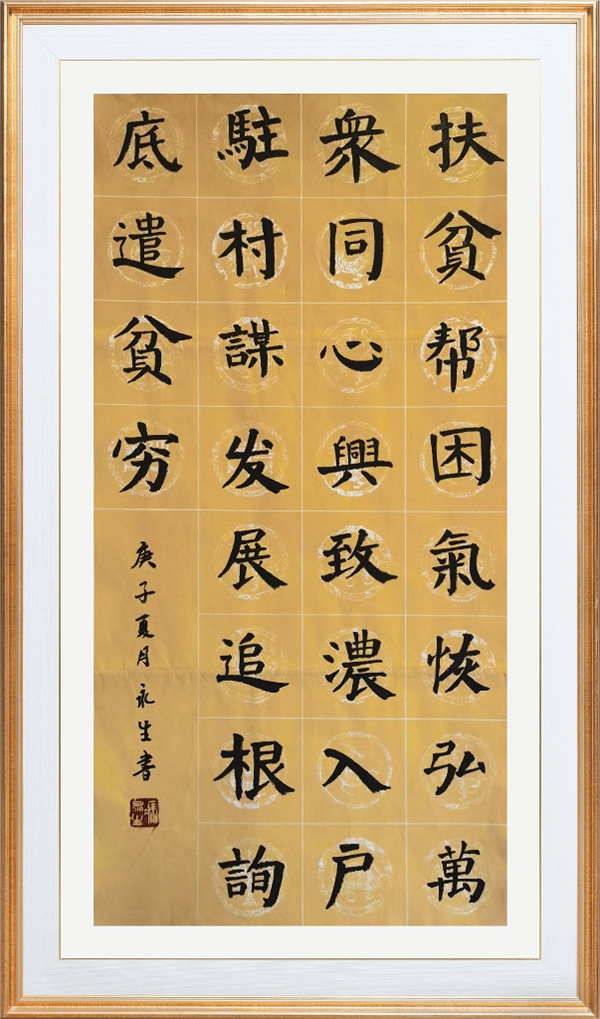 扶貧帮困氣恢弘萬
衆同心興致濃入户
駐村謀发展追根詢
底遣貧穷
庚子夏月永生書